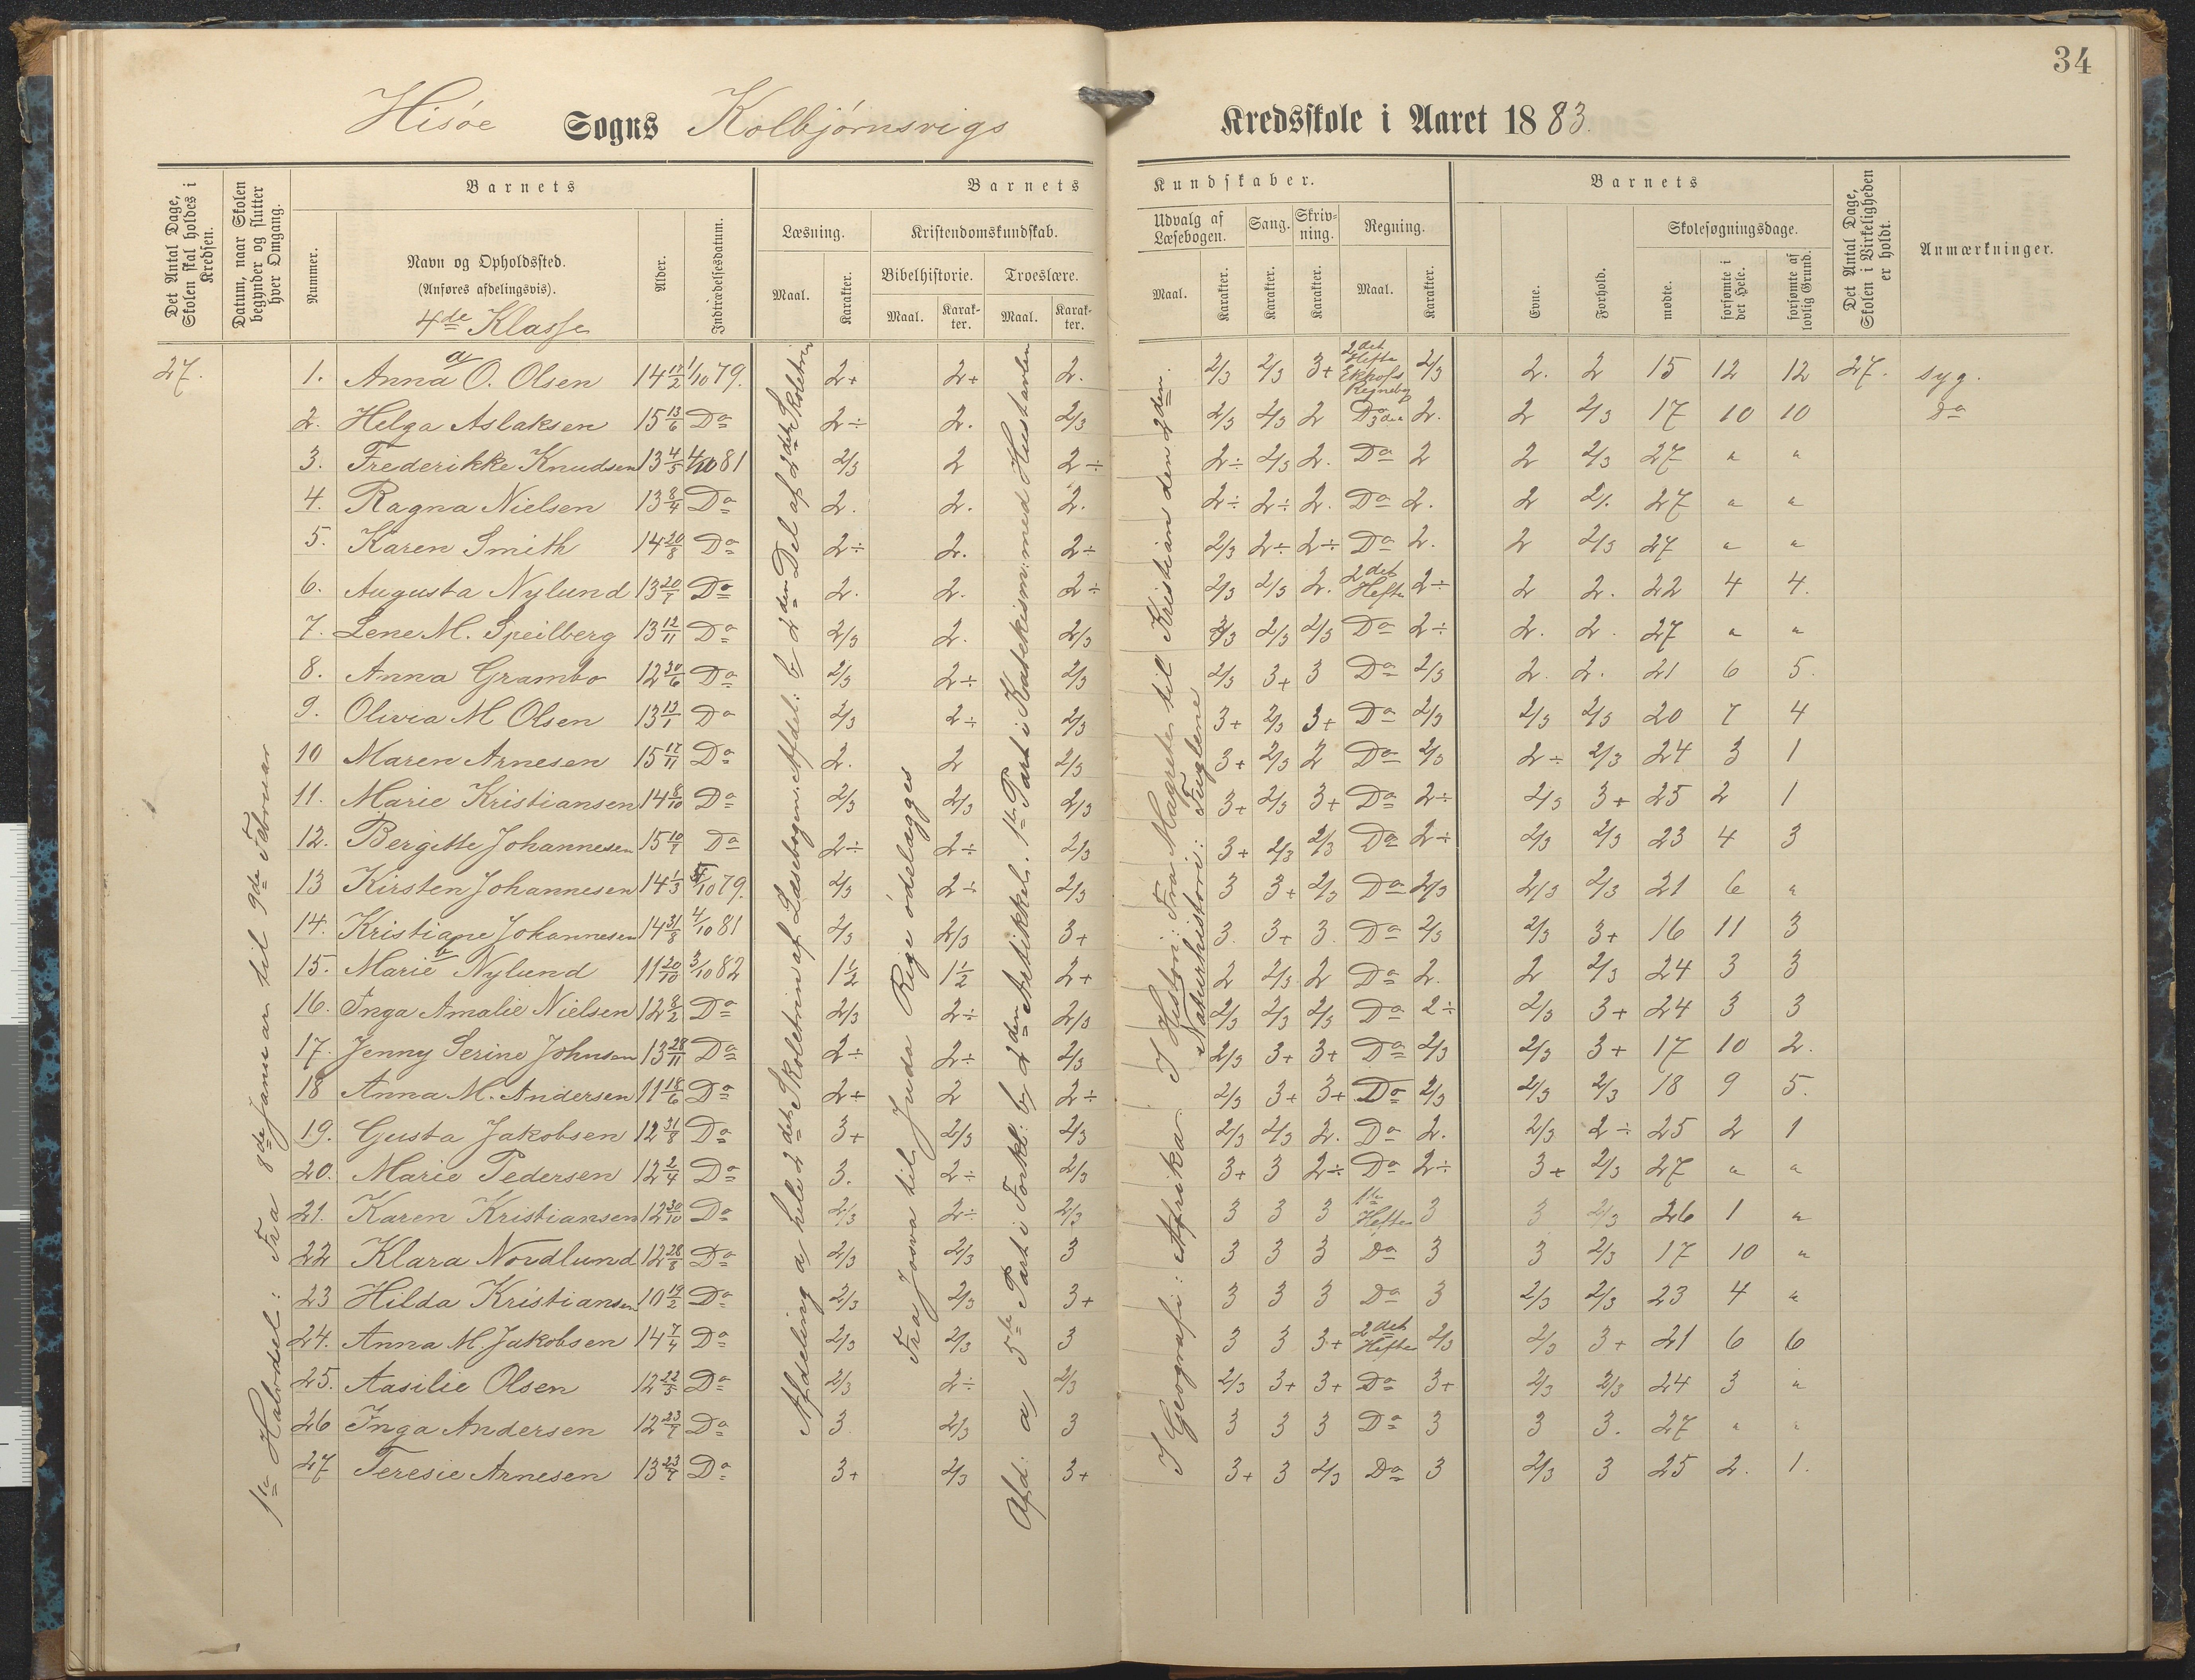 34
Hisøe Sogns Kolbjørnsvigs Kredsskole i Aaret 1883.
Det Antal Dage, Skolen skal holdes i Kredsen.
Datum, naar Skolen begynder og slutter hver Omgang.
Barnets
Nummer.
Navn og Opholdssted.
(Anføres afdelingsvis).
4de Klasse
Alder.
Indtrædelsesdatum.
Barnets Kundskaber.
Læsning.
Maal.
Karakter.
Kristendomskundskab.
Bibelhistorie.
Maal.
Karakter.
Troeslære.
Maal.
Karakter.
Udvalg af Læsebogen.
Maal.
Karakter.
Sang.
Karakter.
Skrivning.
Karakter.
Regning.
Maal.
Karakter.
Barnets
Evne.
Forhold.
Skolesøgningsdage.
mødte.
forsømte i det Hele.
forsømte af lovlig Grund.
Det Antal Dage, Skolen i Virkeligheden er holdt.
Anmærkninger.
1ste Halvdel: Fra 8de Januar til 9de Februar
Afdeling a hele 2det Skoletrin af Læsebogen. Afdel: b 2den Del af 2det Skoletrin
Fra Josva til Juda Rige ødelægges
Afd: a 5te Part i Forkl: b 2den Artikkel. 1ste Part i Katekism: med Hustavlen
I Geografi: Afrika. I Histori: Fra Magrete til Kristian den 2den.
Naturhistorie: Fuglene
27. 1. Anna a O. Olsen 14 12/2 1/10 79. 2+ 2+ 2. 2/3 2/3 3+ 2det Hefte Ekhofs Regnebog 2/3 2. 2 15 12 12 27. syg.
2. Helga Aslaksen 15 13/6 Do 2÷ 2. 2/3 2/3 2/3 2 Do 3die 2. 2 2/3 17 10 10 do
3. Frederikke Knudsen 13 4/5 4/10 81 2/3 2 2÷ 2÷ 2/3 2. Do 2 2 2/3 27 " "
4. Ragna Nielsen 13 8/4 Do 2. 2. 2. 2÷ 2÷ 2. Do 2. 2 2. 27 " "
5. Karen Smith 14 20/8 Do 2÷ 2. 2÷ 2/3 2÷ 2÷ Do 2. 2 2/3 27 " "
6. Augusta Nylund 13 20/7 Do 2. 2. 2÷ 2/3 2/3 2. 2det Hefte 2÷ 2 2. 22 4 4.
7. Lene M. Speilberg 13 12/11 Do 2/3 2. 2/3 2/3 2/3 2/3 Do 2÷ 2. 2. 27 " "
8. Anna Grambo 12 20/6 Do 2/3 2÷ 2/3 2/3 3+ 3 Do 2/3 2. 2. 21 6 5.
9. Olivia M Olsen 13 13/1 Do 2/3 2÷ 2/3 3+ 2/3 3+ Do 2/3 2/3 2/3 20 7 4
10 Maren Arnesen 15 17/11 Do 2. 2 2/3 3+ 2/3 2 Do 2/3 2÷ 2/3 24 3 1
11. Marie Kristiansen 14 8/10 Do 2/3 2/3 2/3 3+ 2/3 3+ Do 2÷ 2/3 3+ 25 2 1
12. Bergitte Johannesen 15 10/7 Do 2÷ 2÷ 2/3 3+ 2/3 2/3 Do 2÷ 2/3 2/3 23 4 3
13 Kirsten Johannesen 14 1/3 /10 79. 2/3 2÷ 2/3 3 3+ 2/3 Do 2/3 2/3 2/3 21 6 "
14. Kristiane Johannesen 14 31/8 4/10 81 2/3 2/3 3+ 3. 3+ 3. Do 2/3 2/3 3+ 16 11 3
15. Marie b Nylund 11 20/10 3/10 82 1½ 1½ 2+ 2 2/3 2 Do 2. 2 2/3 24 3 3
16. Inga Amalie Nielsen 12 8/2 Do 2/3 2÷ 2/3 2/3 2/3 2/3 Do 2÷ 2/3 3+ 24 3 3
17. Jenny Serine Johnsen 13 28/11 Do 2÷ 2÷ 2/3 2/3 3+ 3+ Do 2/3 2/3 3+ 17 10 2.
18 Anna M. Andersen 11 18/6 Do 2+ 2 2÷ 2/3 3+ 3+ Do 2/3 2/3 2/3 18 9 5.
19. Gusta Jakobsen 12 31/8 Do 3+ 2/3 2/3 2/3 2/3 2. Do 2. 2/3 2÷ 25 2 1
20. Marie Pedersen 12 2/4 Do 3. 2÷ 2/3 3+ 3 2÷ Do 2÷ 3+ 2/3 27 " "
21. Karen Kristiansen 12 30/10 Do 2/3 2÷ 2/3 3 3 3 1ste Hefte 3 3 2/3 26 1 "
22 Klara Nordlund 12 28/8 Do 2/3 2/3 3 3 3 3 Do 3 3 2/3 17 10 "
23 Hilda Kristiansen 10 19/2 Do 2/3 2/3 3+ 3 3 3 Do 3 2/3 2/3 23 4 "
24. Anna M. Jakobsen 14 7/4 Do 2/3 2/3 3 3 3 3+ 2det Hefte 2/3 2/3 3+ 21 6 6
25. Aasilie Olsen 12 22/5 Do 2/3 2÷ 2/3 2/3 3+ 3+ Do 3+ 2/3 2/3 24 3 "
26 Inga Andersen 12 23/7 Do 3 2/3 3 3 3 3 Do 3 3 3. 27 " "
27 Teresie Arnesen 13 23/7 Do 3+ 2/3 3+ 3+ 3 2/3 Do 3 2/3 3 25 2. 1.